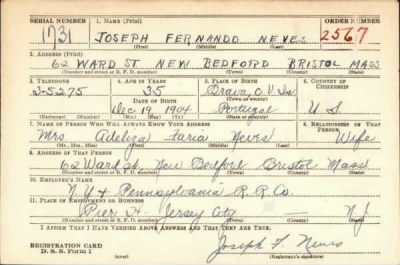 SERIAL NUMBER 1. NAME (Print) ORDER NUMBER
1731 JOSEPH FERNANDO NEVES 2567
(First) (Middle) (Last)
2. ADDRESS (Print)
62 WARD ST. NEW BEDFORD BRISTOL MASS.
(Number and street or R. F. D. number) (Town) (County) (State)
3. TELEPHONE 4. AGE IN YEARS 5. PLACE OF BIRTH 6. COUNTRY OF CITIZENSHIP
2-5275 35 Brava, C.V. Is.
DATE OF BIRTH (Town or county)
Dec 19 1904 Portugal U. S.
(Exchange) (Number) (Mo.) (Day) (Yr.) (State or country)
7. NAME OF PERSON WHO WILL ALWAYS KNOW YOUR ADDRESS 8. RELATIONSHIP OF THAT PERSON
Mrs. Adeliza Faria Neves Wife
(Mr., Mrs., Miss) (First) (Middle) (Last)
9. ADDRESS OF THAT PERSON
62 Ward St. New Bedford Bristol Mass
(Number and street or R. F. D. number) (Town) (County) (State)
10. EMPLOYER'S NAME
N.Y. & Pennsylvania R.R. Co.
11. PLACE OF EMPLOYMENT OR BUSINESS
Pier H. Jersey City — N.J.
(Number and street or R. F. D. number) (Town) (County) (State)
I AFFIRM THAT I HAVE VERIFIED ABOVE ANSWERS AND THAT THEY ARE TRUE.
Joseph F. Neves
REGISTRATION CARD
D. S. S. Form 1 (over) (Registrant's signature)